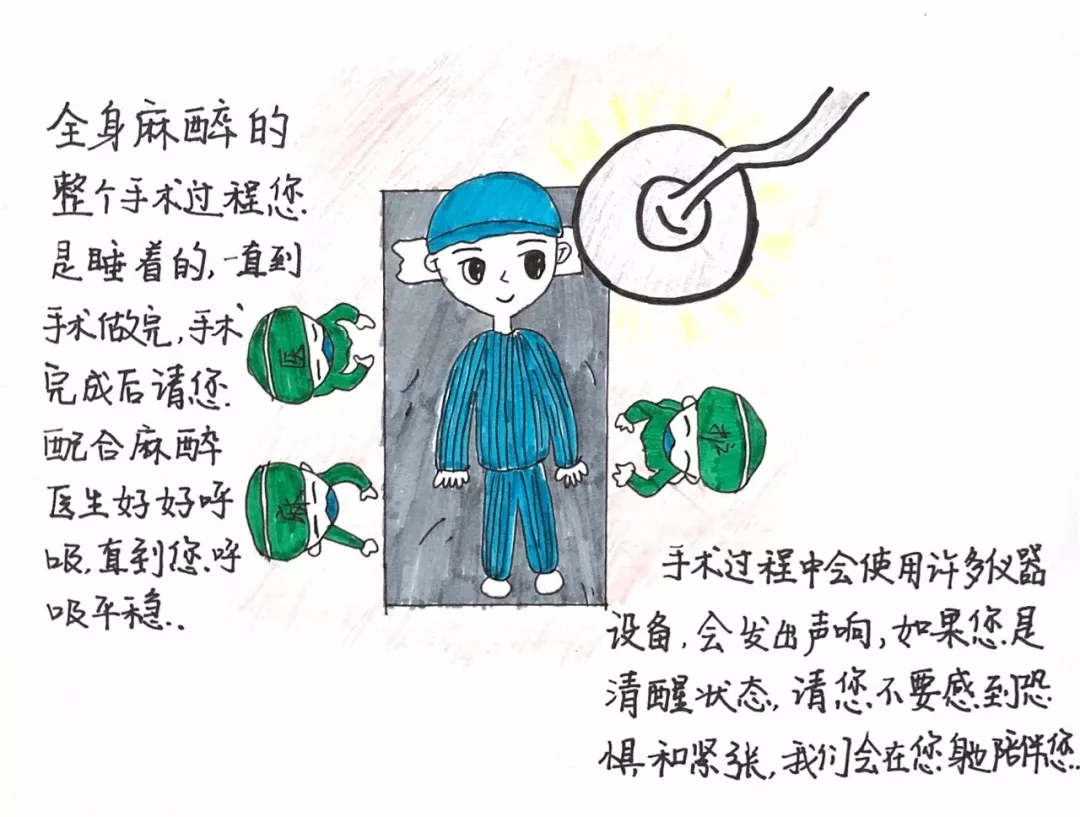 全身麻醉的
整个手术过程您
是睡着的,一直到
手术做完,手术
完成后请您
配合麻醉
医生好好呼
吸,直到您呼
吸平稳..
医
麻
护
手术过程中会使用许多仪器
设备,会发出声响,如果您是
清醒状态,请您不要感到恐
惧和紧张,我们会在您身边陪伴您..